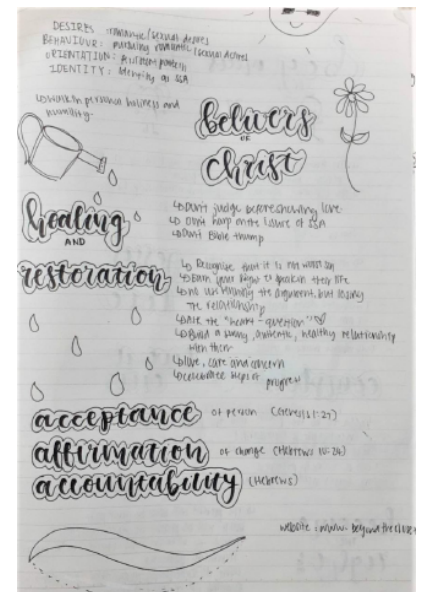 DESIRES : romantic/sexual desires
BEHAVIOUR : pursuing romantic/sexual desires
ORIENTATION : patterns
IDENTITY : identifying as SSA
↳ Walk in personal holiness and
humility.
belivers
OF
christ
↳ Don't judge before showing love
↳ Don't harp on the issue of SSA
↳ Don't Bible thump
healing
AND
restoration
↳ Recognise that it is not worst sin
↳ Earn your right to speak in their life
↳ No use winning the argument, but losing
the relationship
↳ Ask the "heart-question"
↳ Build a strong, authentic, healthy relationship
with them
↳ Love, care and concern
↳ Celebrate steps of progress
acceptance of person (Genesis 1:27)
affirmation of change (Hebrews 10:24)
accountability (Hebrews)
website : www. beyond the